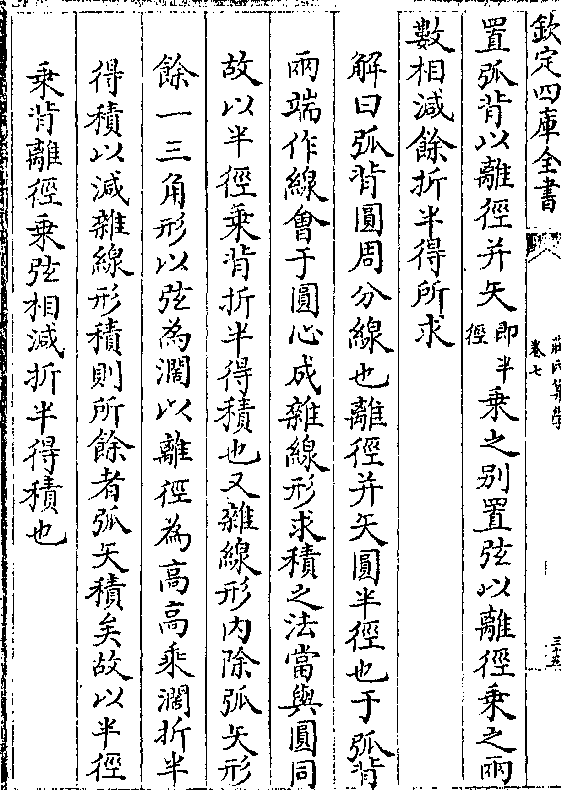 欽定四庫全書
莊氏算學
卷七
三十五
置弧背以離徑并矢即半徑乗之别置弦以離徑乗之兩
數相減餘折半得所求
解曰弧背圓周分線也離徑并矢圓半徑也于弧背
兩端作線㑹于圓心成雜線形求積之法當與圓同
故以半徑乗背折半得積也又雜線形内除弧矢形
餘一三角形以弦為濶以離徑為高高乘濶折半
得積以減雜線形積則所餘者弧矢積矣故以半徑
乗背離徑乗弦相減折半得積也